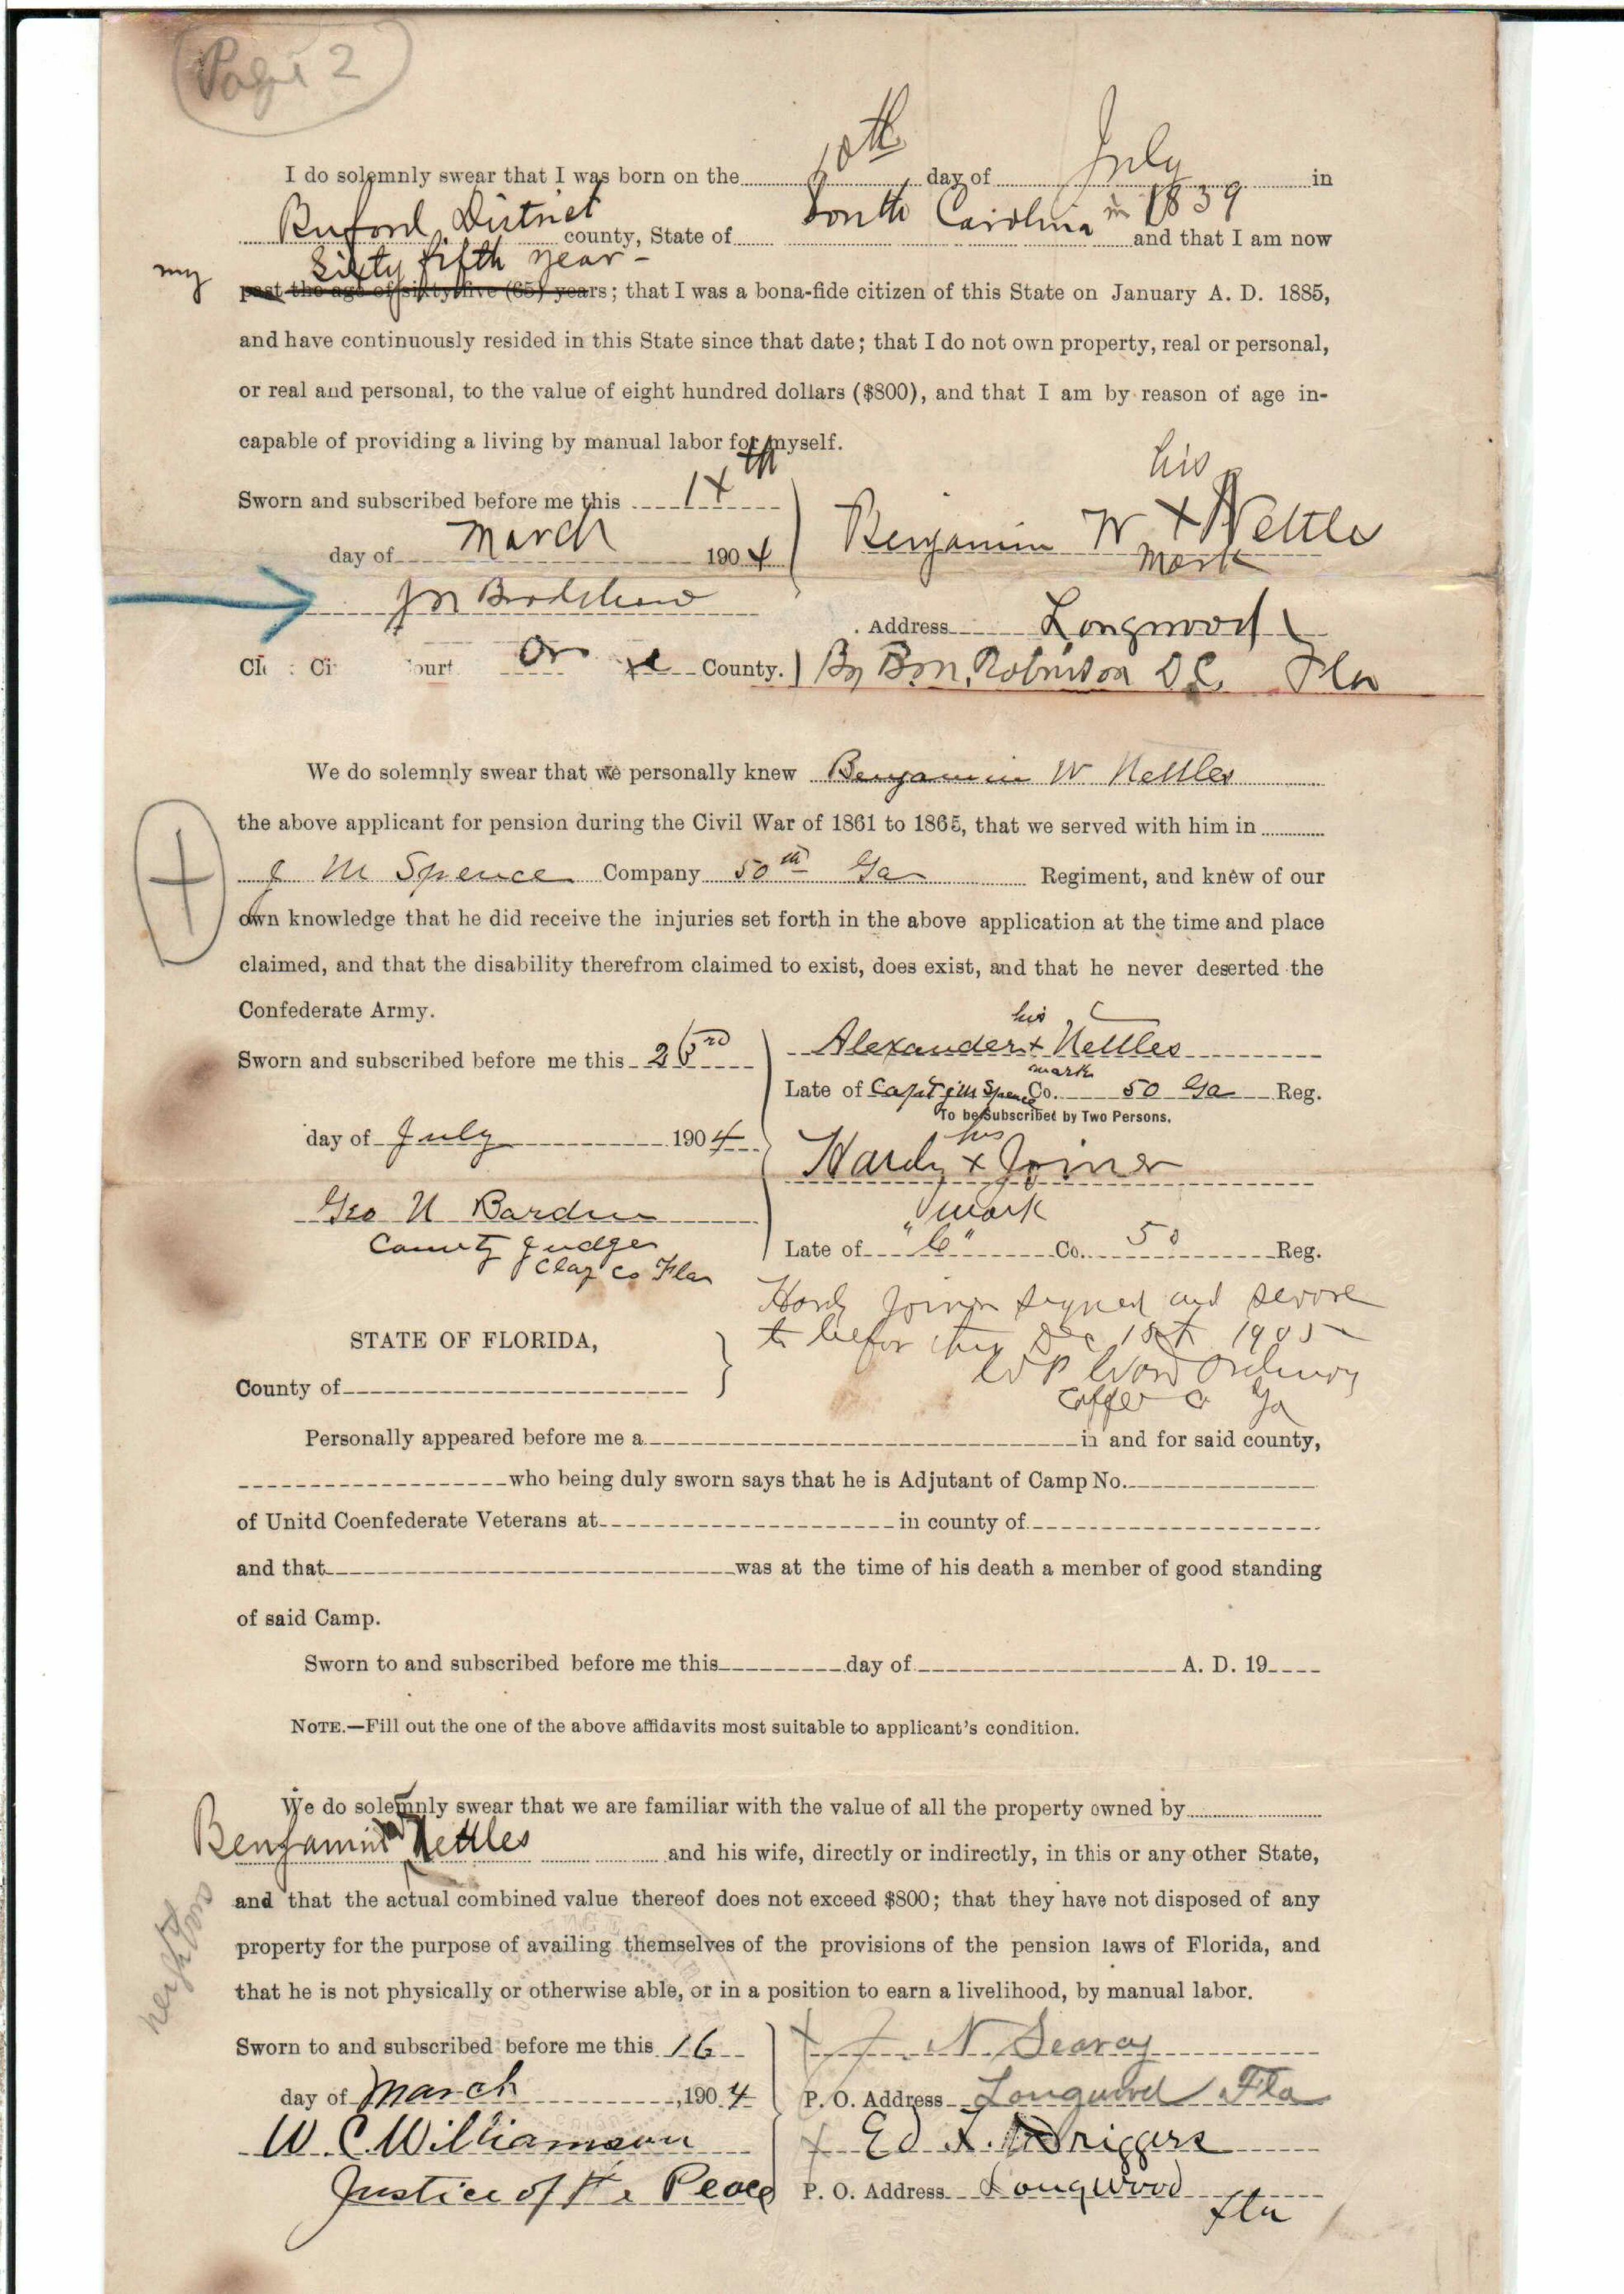 Page 2
I do solemnly swear that I was born on the 10th day of July in
Buford District county, State of South Carolina in 1839 and that I am now
my Sixty fifth year -
past the age of sixty-five (65) years; that I was a bona-fide citizen of this State on January A. D. 1885,
and have continuously resided in this State since that date; that I do not own property, real or personal,
or real and personal, to the value of eight hundred dollars ($800), and that I am by reason of age in-
capable of providing a living by manual labor for myself.
Sworn and subscribed before me this 14th
day of March 1904
his
Benjamin W x Nettles
mark
Address Longwood
County. By B M Robinson D.C. Fla
We do solemnly swear that we personally knew Benjamin W Nettles
the above applicant for pension during the Civil War of 1861 to 1865, that we served with him in
J M Spence Company 50th Ga Regiment, and knew of our
own knowledge that he did receive the injuries set forth in the above application at the time and place
claimed, and that the disability therefrom claimed to exist, does exist, and that he never deserted the
Confederate Army.
Sworn and subscribed before me this 23rd
day of July 1904
Geo N
County Judge
Clay Co Fla
his
Alexander x Nettles
mark
Late of Capt J M Spence Co. 50 Ga Reg.
To be Subscribed by Two Persons.
his
Hardy x Joiner
mark
Late of "C" Co. 50 Reg.
Hardy Joiner signed and swore
to before this Dec 1st 1905
W P Ward Ordinary
Coffee Co Ga
STATE OF FLORIDA,
County of
Personally appeared before me a in and for said county,
who being duly sworn says that he is Adjutant of Camp No.
of Unitd Coenfederate Veterans at in county of
and that was at the time of his death a member of good standing
of said Camp.
Sworn to and subscribed before me this day of A. D. 19
NOTE.—Fill out the one of the above affidavits most suitable to applicant's condition.
We do solemnly swear that we are familiar with the value of all the property owned by
Benjamin W Nettles and his wife, directly or indirectly, in this or any other State,
and that the actual combined value thereof does not exceed $800; that they have not disposed of any
property for the purpose of availing themselves of the provisions of the pension laws of Florida, and
that he is not physically or otherwise able, or in a position to earn a livelihood, by manual labor.
neighbors
Sworn to and subscribed before me this 16
day of March, 1904
W. C. Williamson
Justice of the Peace
x J. N. Searcy
P. O. Address Longwood Fla
x Ed Driggers
P. O. Address Longwood
Fla